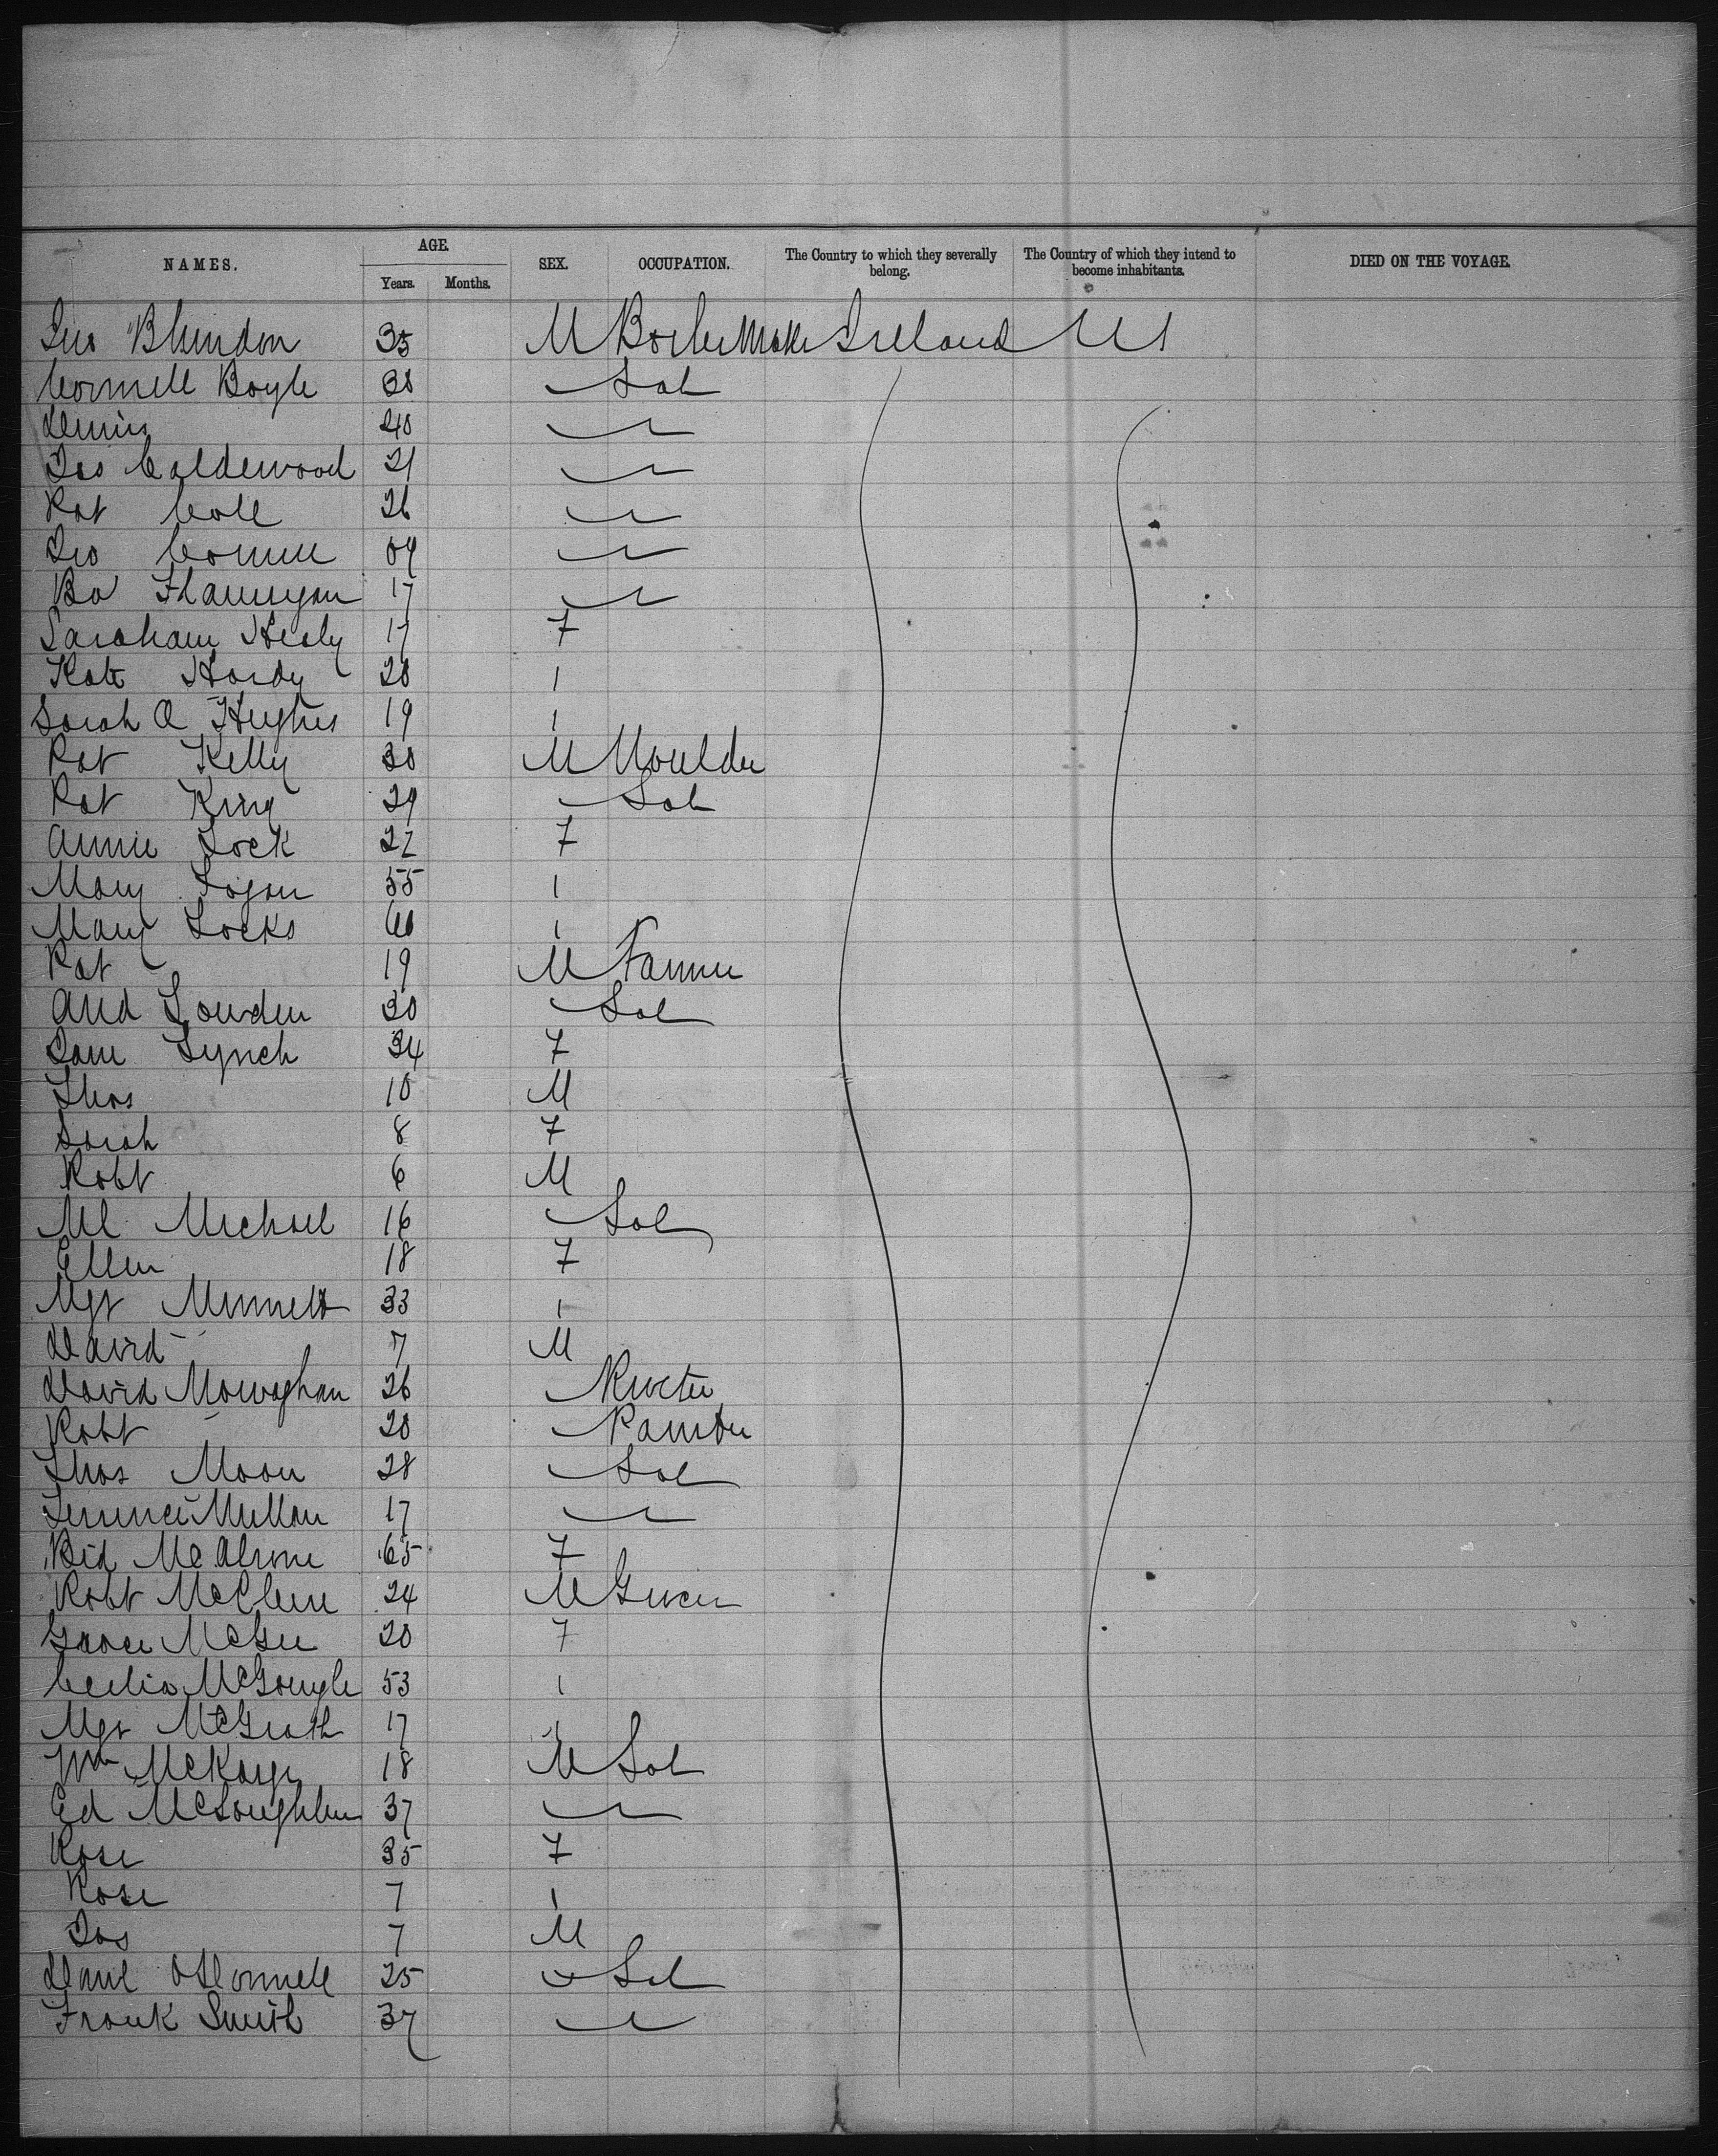 NAMES. AGE. SEX. OCCUPATION. The Country to which they severally belong. The Country of which they intend to become inhabitants. DIED ON THE VOYAGE.
Years. Months.
Blundon 35 M BoilerMaker Ireland US
Connell Boyle 38 Lab
Dennis 40
Jas Calderwood 21
Pat Coll 26
17
Healy 17 F
Kate Hardy 20 1
Sarah A Hughes 19 1
Pat Kelly 30 M Moulder
Pat King 29 Lab
Annie Lock 22 F
Mary Logan 55 1
Mary Locks 60 1
Pat 19 M Farmer
And Louden 30 Lab
Jane Lynch 34 F
Thos 10 M
Sarah 8 F
Robt 6 M
Ml Michael 16 Lab
Ellen 18 F
Mgt 33 1
David 7 M
David Monaghan 26 Riveter
Robt 20 Painter
Thos Moon 28 Lab
Terrence Mullan 17
Bid 65 F
Robt McClure 24 M Grocer
Grace McGee 20 F
Cecilia McGonigle 53 1
Mgt McGrath 17 1
Wm 18 M Lab
Ed McLoughlin 37
Rose 35 F
Rose 7 1
Jas 7 M
Danl O'Donnell 25 Lab
Frank Smith 37